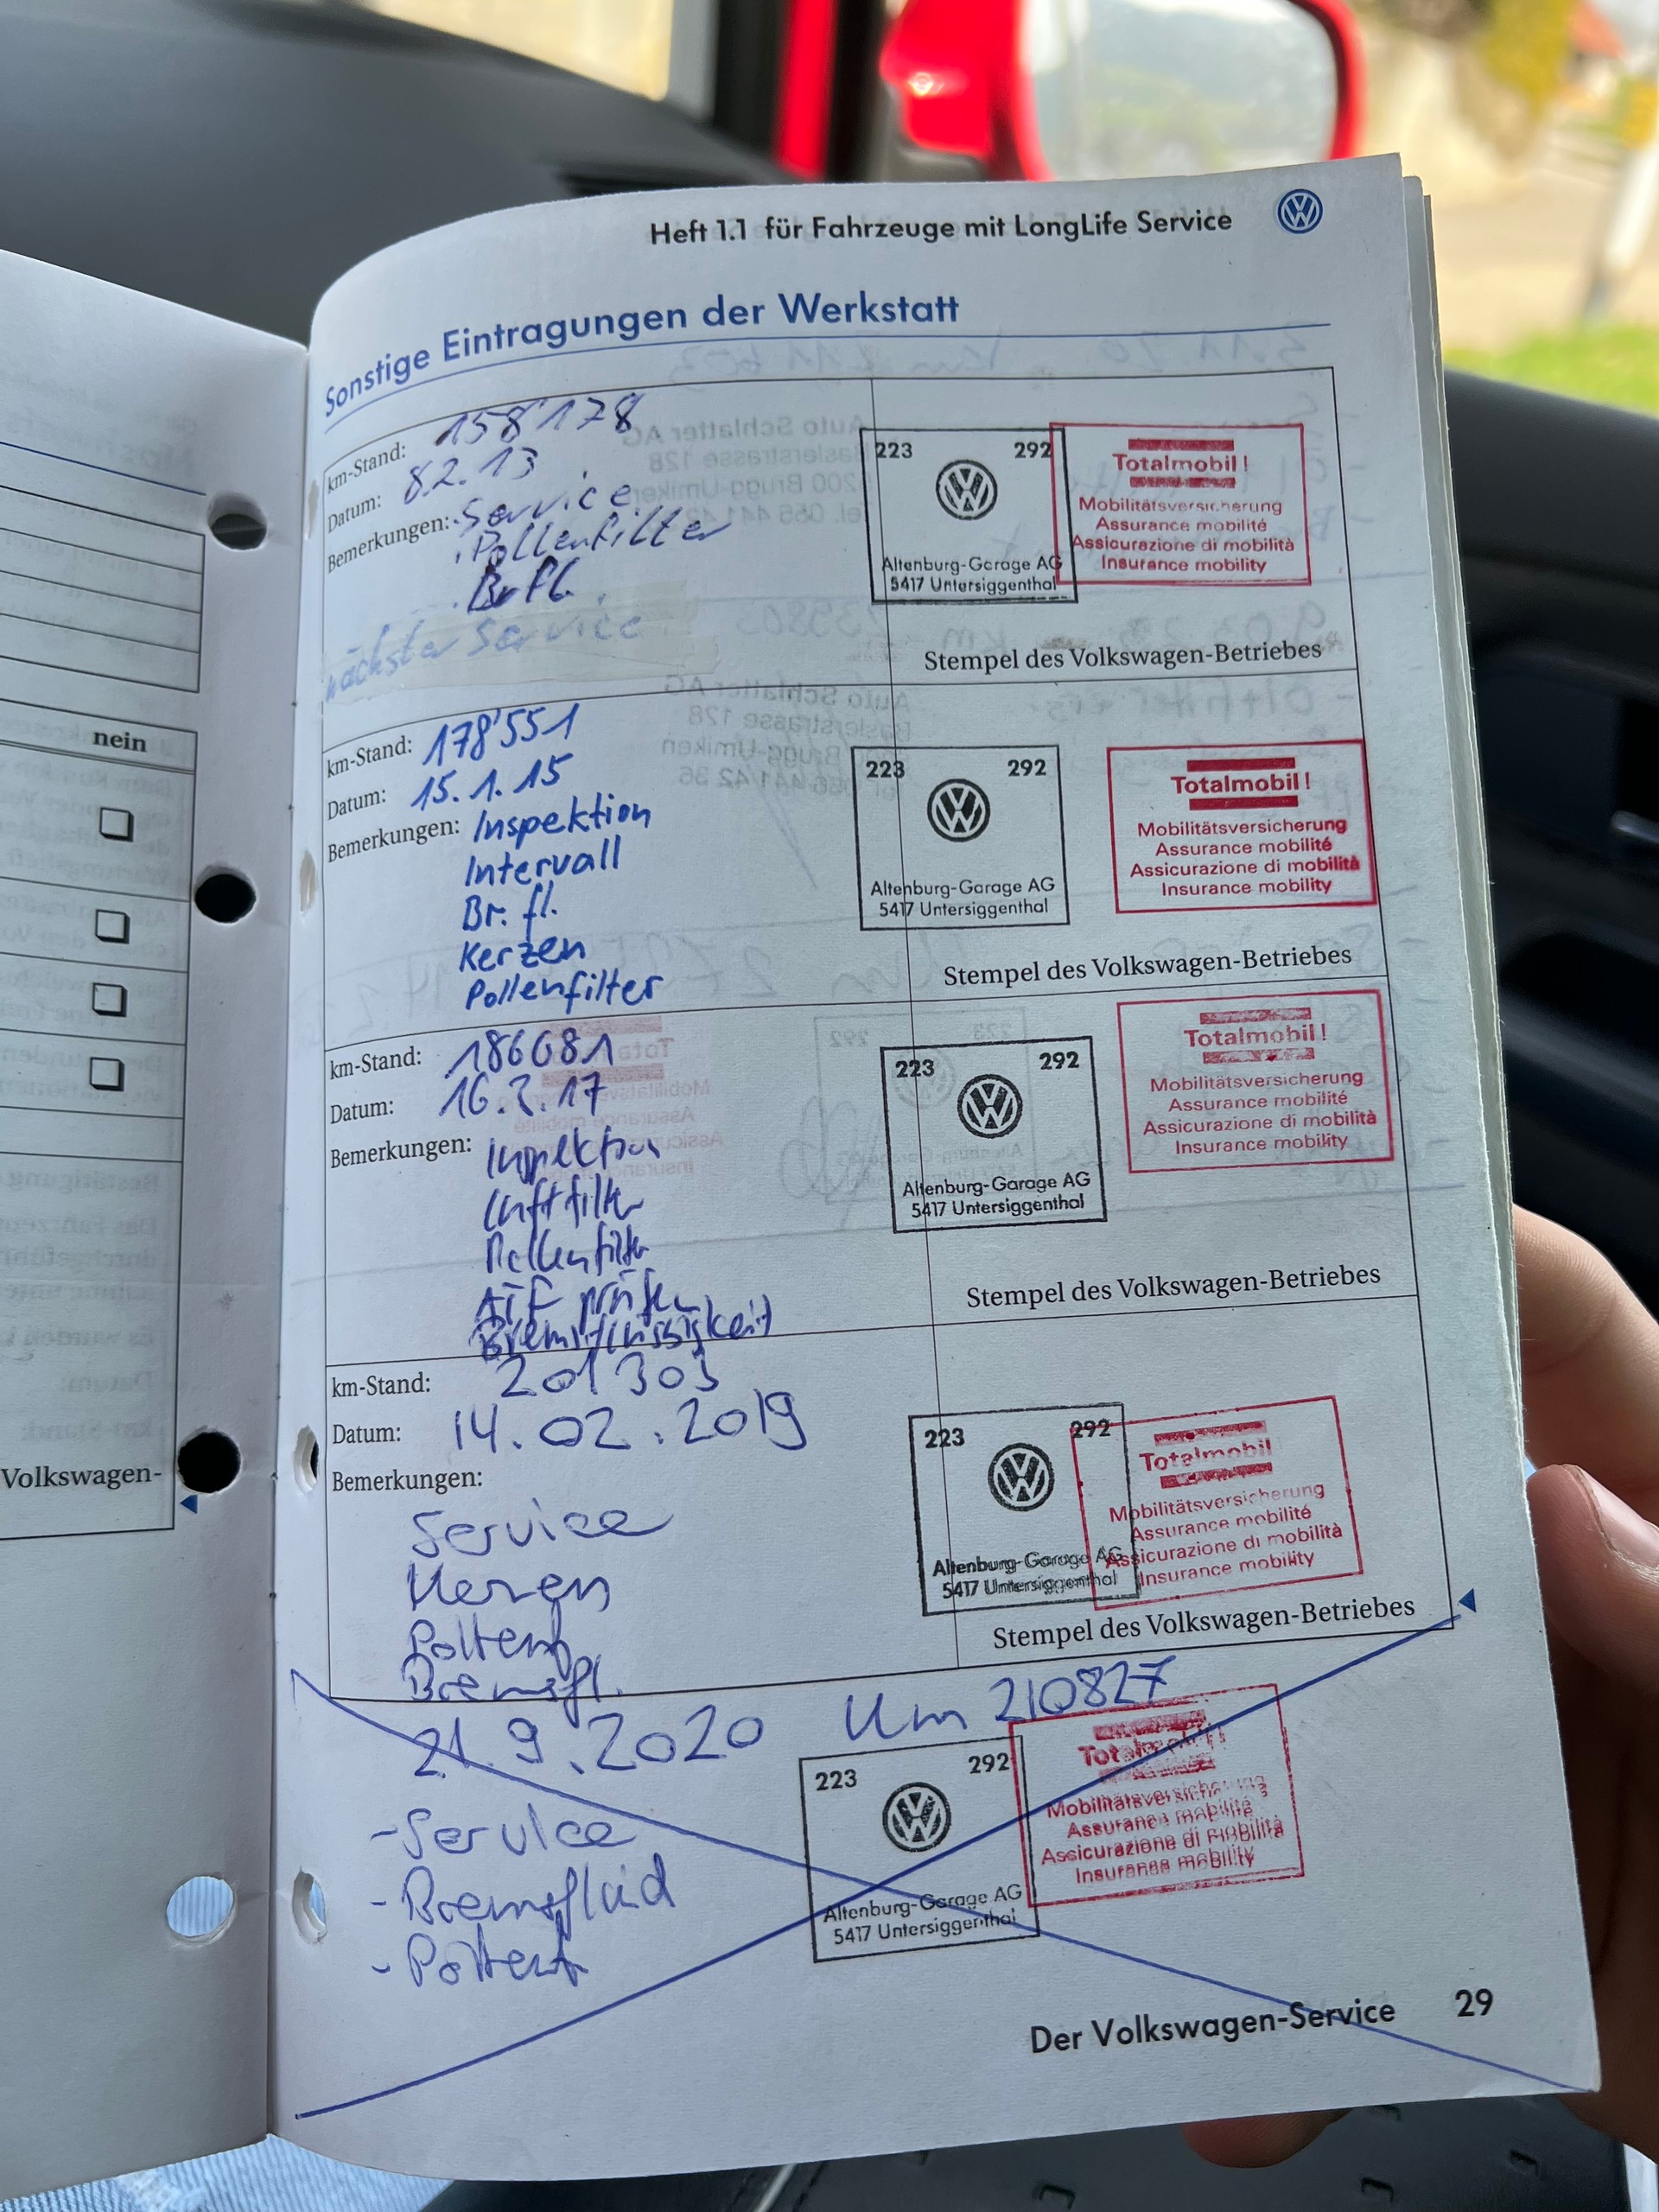 Heft 1.1 für Fahrzeuge mit LongLife Service
Sonstige Eintragungen der Werkstatt
km-Stand: 158'178
Datum: 8.2.13
Bemerkungen: Service
Pollenfilter
Br.fl.
nächster Service
223 292
Altenburg-Garage AG
5417 Untersiggenthal
Totalmobil!
Mobilitätsversicherung
Assurance mobilité
Assicurazione di mobilità
Insurance mobility
Stempel des Volkswagen-Betriebes
km-Stand: 178'551
Datum: 15.1.15
Bemerkungen: Inspektion
Intervall
Br. fl.
Kerzen
Pollenfilter
223 292
Altenburg-Garage AG
5417 Untersiggenthal
Totalmobil!
Mobilitätsversicherung
Assurance mobilité
Assicurazione di mobilità
Insurance mobility
Stempel des Volkswagen-Betriebes
km-Stand: 186681
Datum: 16.3.17
Bemerkungen: Inspektion
Luftfilter
Pollenfilter
prüfen
Bremsflüssigkeit
223 292
Altenburg-Garage AG
5417 Untersiggenthal
Totalmobil!
Mobilitätsversicherung
Assurance mobilité
Assicurazione di mobilità
Insurance mobility
Stempel des Volkswagen-Betriebes
km-Stand: 201303
Datum: 14.02.2019
Bemerkungen:
Service
Kerzen
Pollenf
Bremsfl.
223 292
Altenburg-Garage AG
5417 Untersiggenthal
Totalmobil
Mobilitätsversicherung
Assurance mobilité
Assicurazione di mobilità
Insurance mobility
Stempel des Volkswagen-Betriebes
21.9.2020 Km 210827
- Service
- Bremsfluid
- Pollenf
223 292
Altenburg-Garage AG
5417 Untersiggenthal
Mobilitätsversicherung
Assurance mobilité
Assicurazione di mobilità
Insurance mobility
Der Volkswagen-Service 29
nein
Volkswagen-